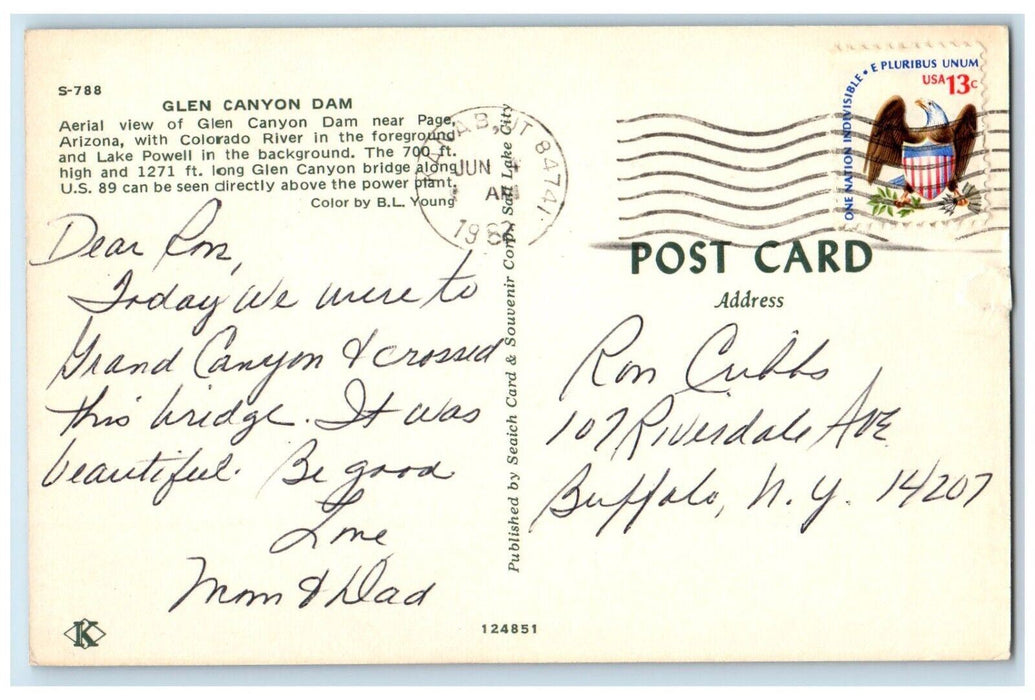 S-788
GLEN CANYON DAM
Aerial view of Glen Canyon Dam near Page,
Arizona, with Colorado River in the foreground
and Lake Powell in the background. The 700 ft.
high and 1271 ft. long Glen Canyon bridge along
U.S. 89 can be seen directly above the power plant.
Color by B.L. Young
Dear Ron,
Today we were to
Grand Canyon & crossed
this bridge. It was
beautiful. Be good
Love
Mom & Dad
K
124851
Published by Seaich Card & Souvenir Corp. Salt Lake City
KANAB, UT 84741
JUN
AM
198
ONE NATION INDIVISIBLE • E PLURIBUS UNUM
USA 13c
POST CARD
Address
Ron Cubbs
107 Riverdale Ave
Buffalo, N.Y. 14207